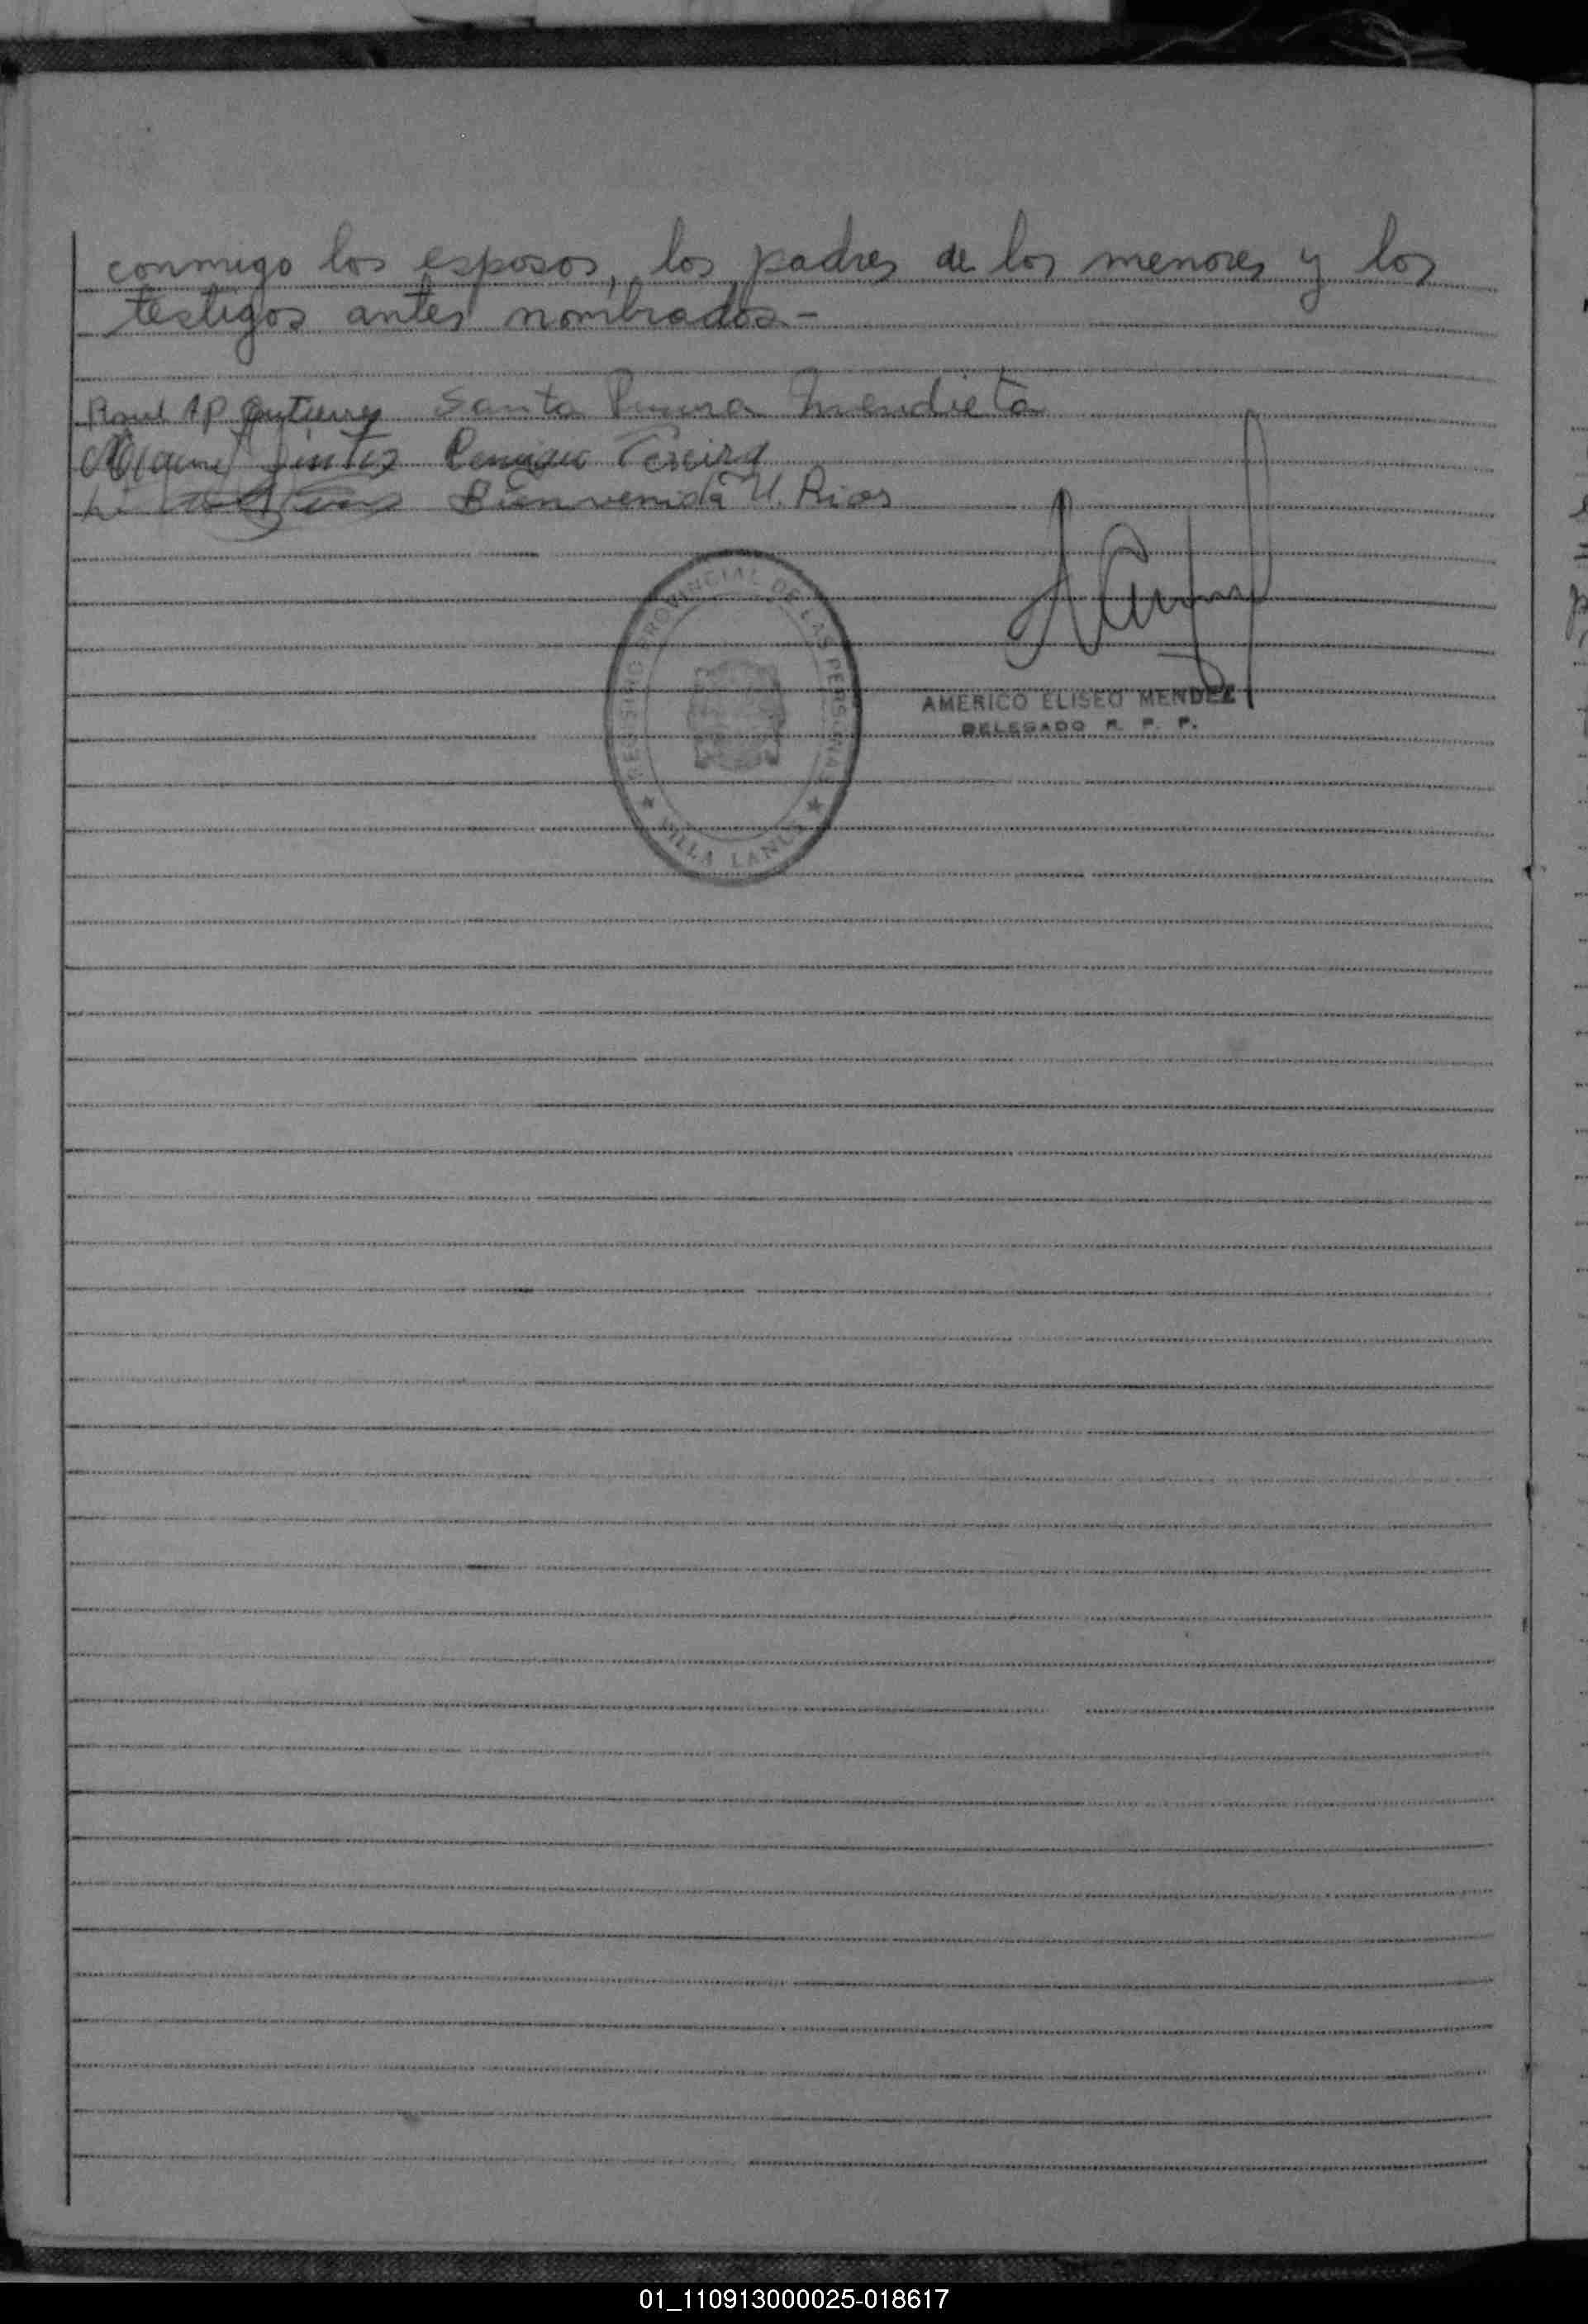 conmigo los esposos, los padres de los menores y los
testigos antes nombrados.-
Raul A P Gutierrez Santa Mendieta
Pereira
Bienvenida U. Rios
REGISTRO PROVINCIAL DE LAS PERSONAS
VILLA LANUS
AMERICO ELISEO MENDEZ
DELEGADO R. P. P.
01_110913000025-018617